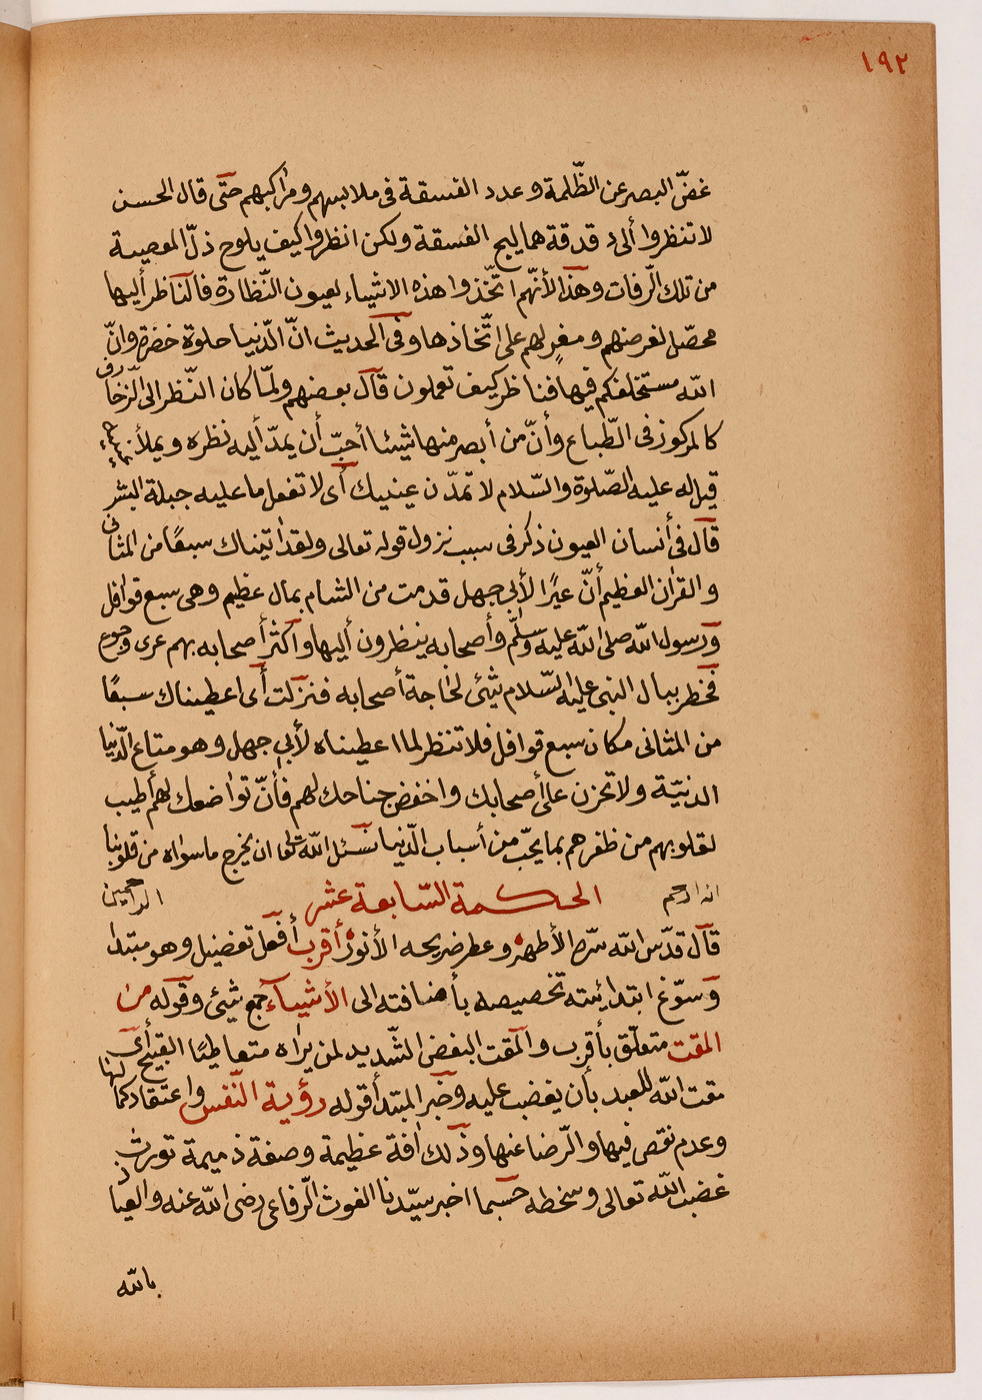 ١٩٢
غضّ البصر عن الظّلمة وعدد الفسقة فى ملابسهم ومراكبهم حتّى قال الحسن
لا تنظروا ألى دقدقة هماليج الفسقة ولكن انظروا كيف يلوح ذلّ المعصية
من تلك الرّفات وهذا لأنّهم اتّخذوا هذه الاشياء لعيون النّظارة فالنّاظر أليها
محصّل لغرضهم ومغرٍ لهم على اتّخاذها وفى الحديث انّ الدّنيا حلوة خضرة وانّ
الله مستخلفكم فيها فناظر كيف تعملون قال بعضهم ولمّا كان النّظر الى الزّخارف
كالمركوز فى الطّباع وأنّ من أبصر منها شيئا أحبّ أن يمدّ أليه نظره ويملأ
قيل له عليه الصّلوة والسّلام لا تمدّن عينيك أى لا تفعل ما عليه جبلة البشر
قال فى أنسان العيون ذكر فى سبب نزول قوله تعالى ولقد اتيناك سبعًا من المثانى
والقران العظيم أنّ عيرًا لأبى جهل قدمت من الشام بمال عظيم وهى سبع قوافل
ورسول الله صلى الله عليه وسلّم وأصحابه ينظرون أليها واكثر أصحابه بهم عرى وجوع
فخطر ببال النبى عليه السّلام شيئ لحاجة أصحابه فنزلت أى اعطيناك سبعًا
من المثانى مكان سبع قوافل فلا تنظر لما اعطيناه لأبى جهل وهو متاع الدّنيا
الدنيّة ولا تحزن على أصحابك واخفض جناحك لهم فأنّ تواضعك لهم أطيب
لقلوبهم من ظفرهم بما يحبّ من أسباب الدّنيا نسئل الله تعالى ان يخرج ما سواه من قلوبنا
انه ارحم الراحمين
الحكمة السّابعة عشر
قال قدّس الله سرّه الأطهر وعطر ضريحه الأنور أقرب أفعل تفضيل وهو مبتدا
وسوّغ ابتدائيته تخصيصه بأضافته الى الأشياء جمع شيئ وقوله من
المقت متعلّق بأقرب والمقت البغض الشّديد لمن يراه متعاطيًا القبيح أى
مقت الله للعبد بأن يغضب عليه وخبر المبتدأ قوله رؤية النّفس واعتقاد كمالها
وعدم نقص فيها والرّضا عنها وذلك افة عظيمة وصفة ذميمة تورث
غضب الله تعالى وسخطه حسبما اخبر سيّدنا الغوث الرّفاعى رضى الله عنه والعياذ
بالله